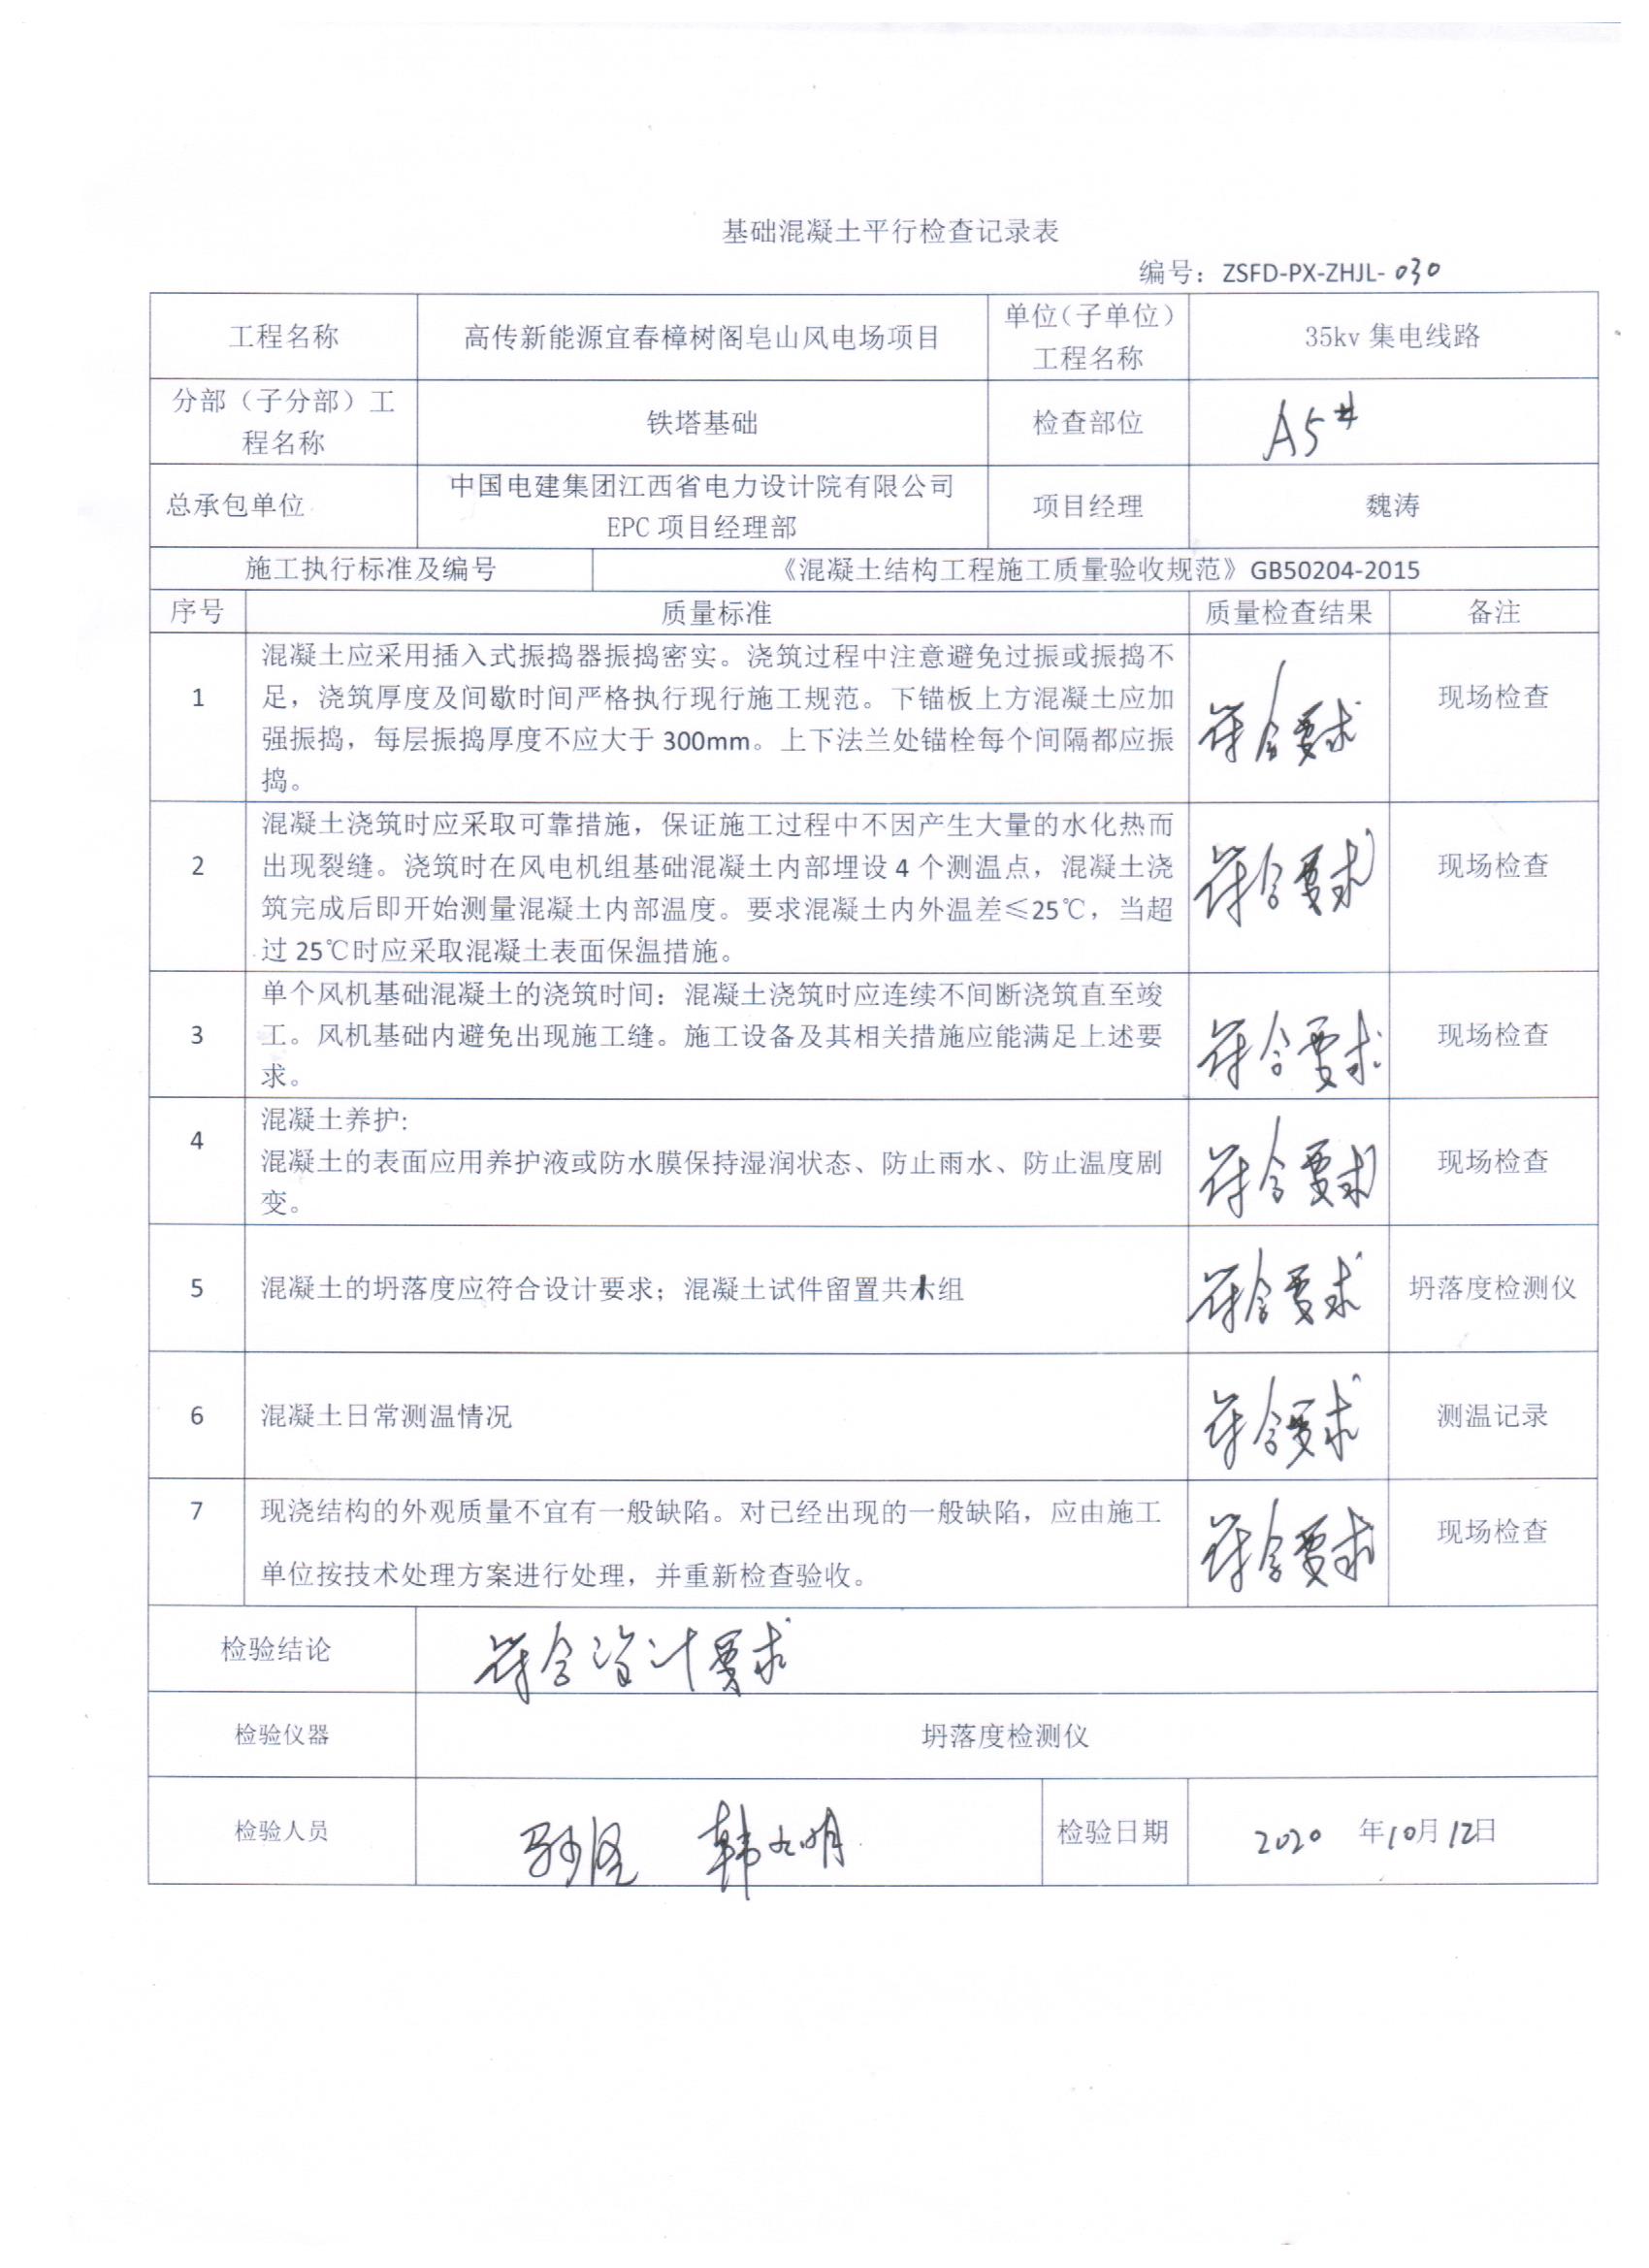 基础混凝土平行检查记录表
编号：ZSFD-PX-ZHJL-030
工程名称 高传新能源宜春樟树阁皂山风电场项目 单位（子单位）工程名称 35kv 集电线路
分部（子分部）工程名称 铁塔基础 检查部位 A5#
总承包单位 中国电建集团江西省电力设计院有限公司 EPC 项目经理部 项目经理 魏涛
施工执行标准及编号 《混凝土结构工程施工质量验收规范》GB50204-2015
序号 质量标准 质量检查结果 备注
1 混凝土应采用插入式振捣器振捣密实。浇筑过程中注意避免过振或振捣不
足，浇筑厚度及间歇时间严格执行现行施工规范。下锚板上方混凝土应加
强振捣，每层振捣厚度不应大于 300mm。上下法兰处锚栓每个间隔都应振
捣。
符合要求 现场检查
2 混凝土浇筑时应采取可靠措施，保证施工过程中不因产生大量的水化热而
出现裂缝。浇筑时在风电机组基础混凝土内部埋设 4 个测温点，混凝土浇
筑完成后即开始测量混凝土内部温度。要求混凝土内外温差≤25℃，当超
过 25℃时应采取混凝土表面保温措施。
符合要求 现场检查
3 单个风机基础混凝土的浇筑时间：混凝土浇筑时应连续不间断浇筑直至竣
工。风机基础内避免出现施工缝。施工设备及其相关措施应能满足上述要
求。
符合要求 现场检查
4 混凝土养护:
混凝土的表面应用养护液或防水膜保持湿润状态、防止雨水、防止温度剧
变。
符合要求 现场检查
5 混凝土的坍落度应符合设计要求；混凝土试件留置共组 符合要求 坍落度检测仪
6 混凝土日常测温情况 符合要求 测温记录
7 现浇结构的外观质量不宜有一般缺陷。对已经出现的一般缺陷，应由施工
单位按技术处理方案进行处理，并重新检查验收。
符合要求 现场检查
检验结论 符合设计要求
检验仪器 坍落度检测仪
检验人员 检验日期 2020 年10月12日